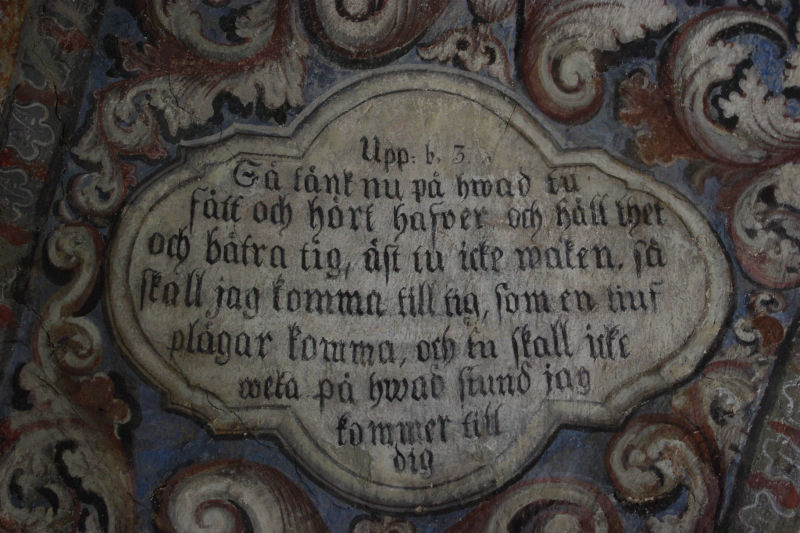 Upp: b. 3.
Så tänk nu på hwad tu
fått och hört hafver och håll thet
och bätra tig, äst tu icke waken, så
skall jag komma till tig, som en tiuf
plägar komma, och tu skall icke
weta på hwad stund jag
kommer till
dig